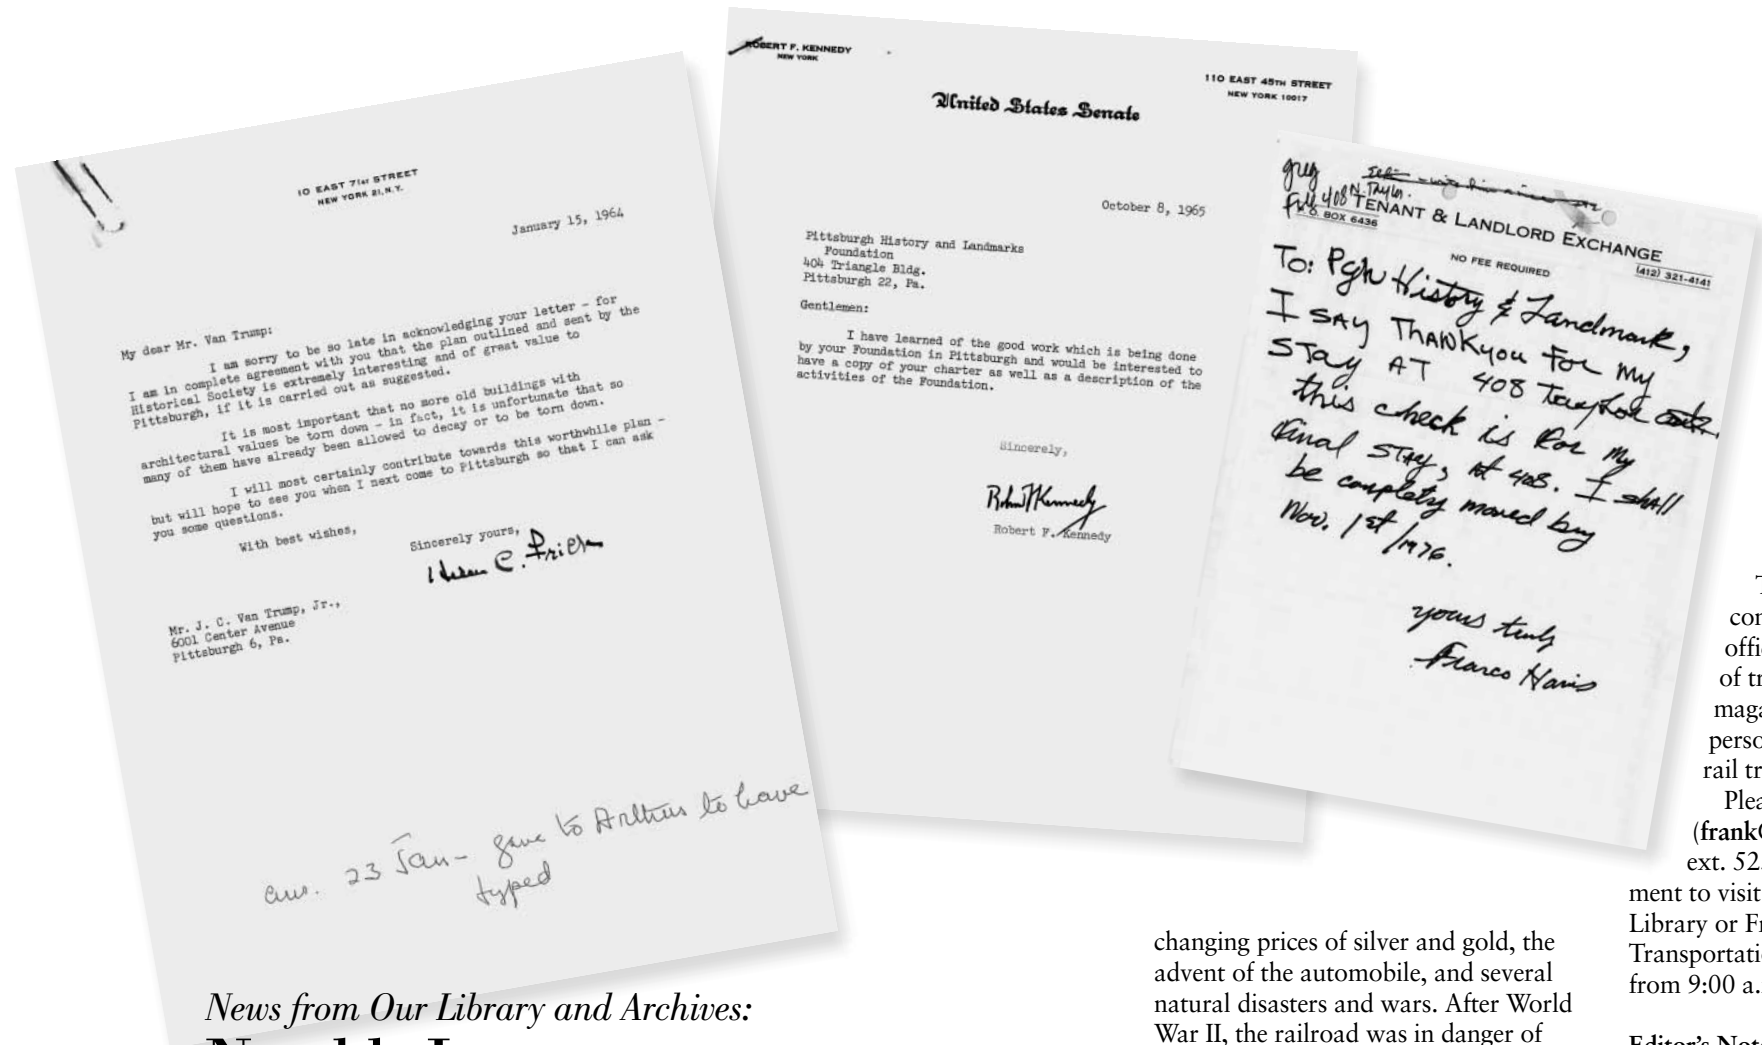 10 EAST 71ST STREET
NEW YORK 21, N.Y.
January 15, 1964
My dear Mr. Van Trump:
I am sorry to be so late in acknowledging your letter - for
I am in complete agreement with you that the plan outlined and sent by the
Historical Society is extremely interesting and of great value to
Pittsburgh, if it is carried out as suggested.
It is most important that no more old buildings with
architectural values be torn down - in fact, it is unfortunate that so
many of them have already been allowed to decay or to be torn down.
I will most certainly contribute towards this worthwhile plan -
but will hope to see you when I next come to Pittsburgh so that I can ask
you some questions.
With best wishes,
Sincerely yours,
Helen C. Frick
Mr. J. C. Van Trump, Jr.,
6001 Center Avenue
Pittsburgh 6, Pa.
ans. 23 Jan - gave to Arthur to have
typed
ROBERT F. KENNEDY
NEW YORK
110 EAST 45TH STREET
NEW YORK 10017
United States Senate
October 8, 1965
Pittsburgh History and Landmarks
Foundation
404 Triangle Bldg.
Pittsburgh 22, Pa.
Gentlemen:
I have learned of the good work which is being done
by your Foundation in Pittsburgh and would be interested to
have a copy of your charter as well as a description of the
activities of the Foundation.
Sincerely,
Robert F Kennedy
Robert F. Kennedy
greg
408 N. Taylor.
P.O. BOX 6436
TENANT & LANDLORD EXCHANGE
NO FEE REQUIRED
(412) 321-4141
To: Pgh History & Landmark,
I SAY THANKyou For my
STay AT 408 Taylor
this check is For my
final STAy, At 408. I shall
be complety moved buy
Nov. 1st/1976.
yours truly
Franco Harris
News from Our Library and Archives:
changing prices of silver and gold, the
advent of the automobile, and several
natural disasters and wars. After World
War II, the railroad was in danger of
T
con
offi
of tr
maga
perso
rail tr
Plea
(frank
ext. 52
ment to visit
Library or Fr
Transportati
from 9:00 a.
Editor's Not